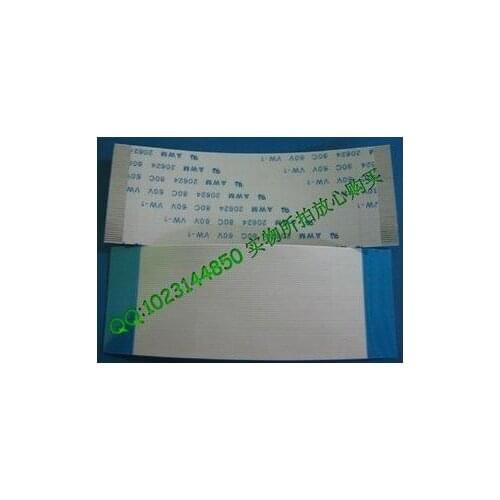 AWM 20624 80C 60V VW-1
AWM 20624 80C 60V VW-1
AWM 20624 80C 60V VW-1
AWM 20624 80C 60V VW-1
QQ:1023144850 实物所拍放心购买